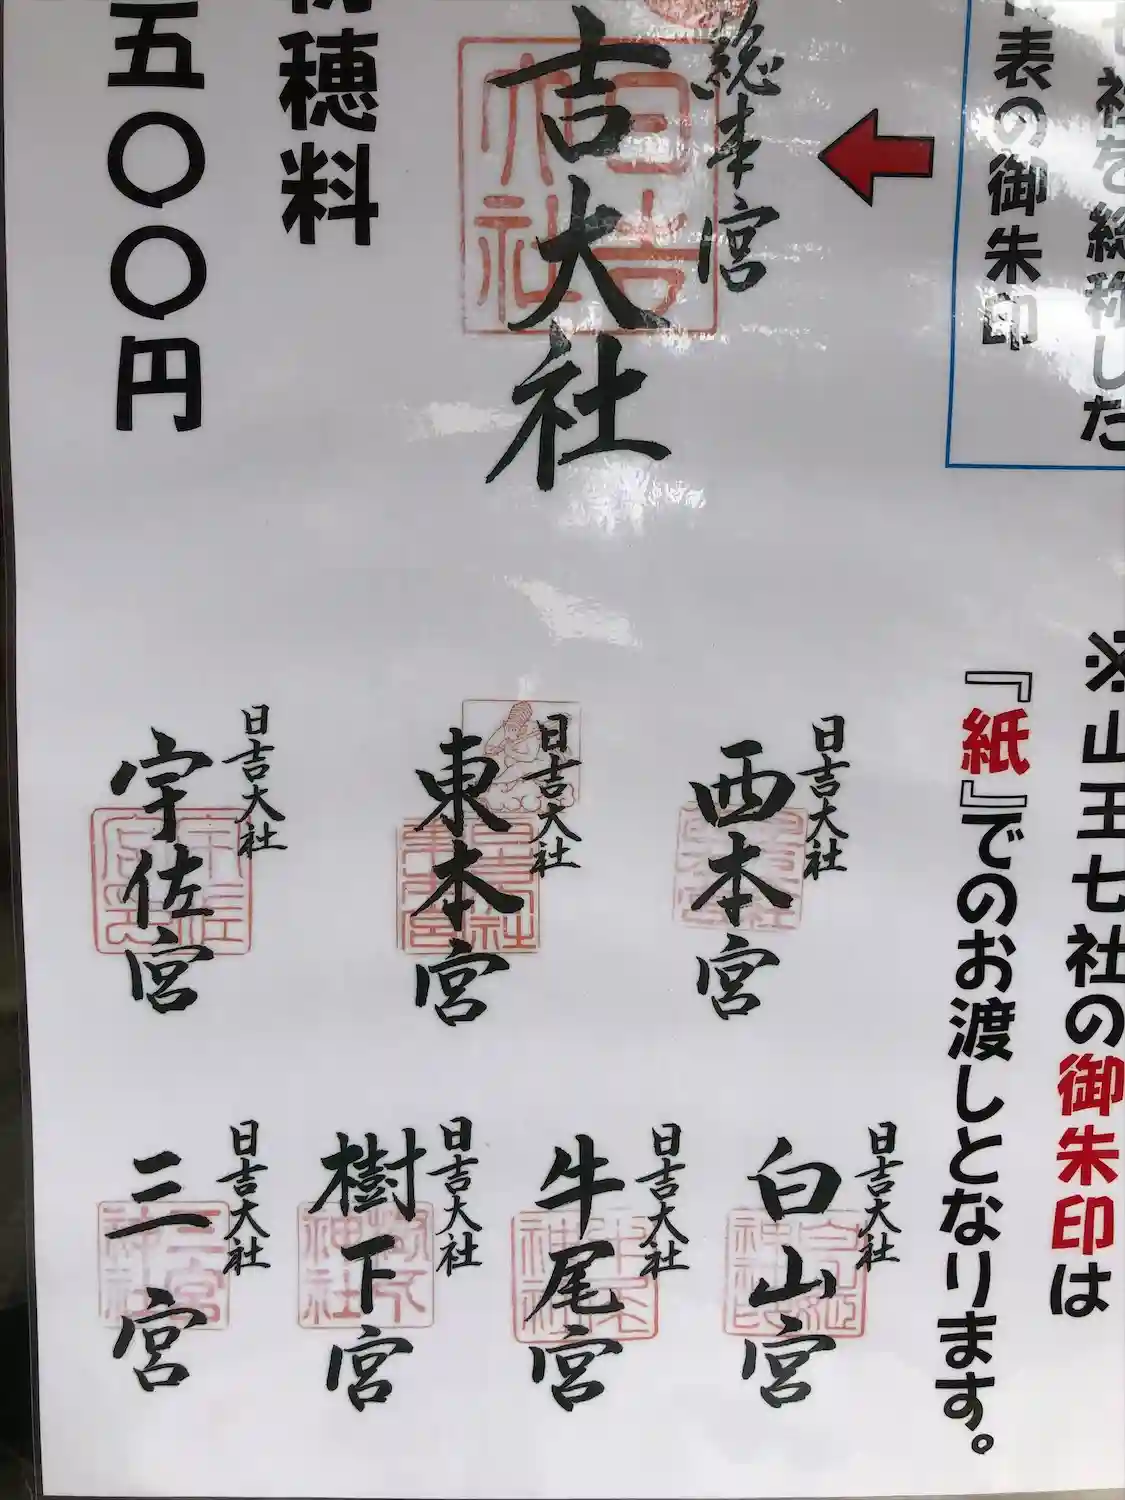 七社を総称した
代表の御朱印
総本宮
日吉大社
吉大社
初穂料
五〇〇円
※山王七社の御朱印は
『紙』でのお渡しとなります。
日吉大社
西本宮
日吉大社
東本宮
日吉大社
宇佐宮
日吉大社
白山宮
日吉大社
牛尾宮
日吉大社
樹下宮
日吉大社
三宮